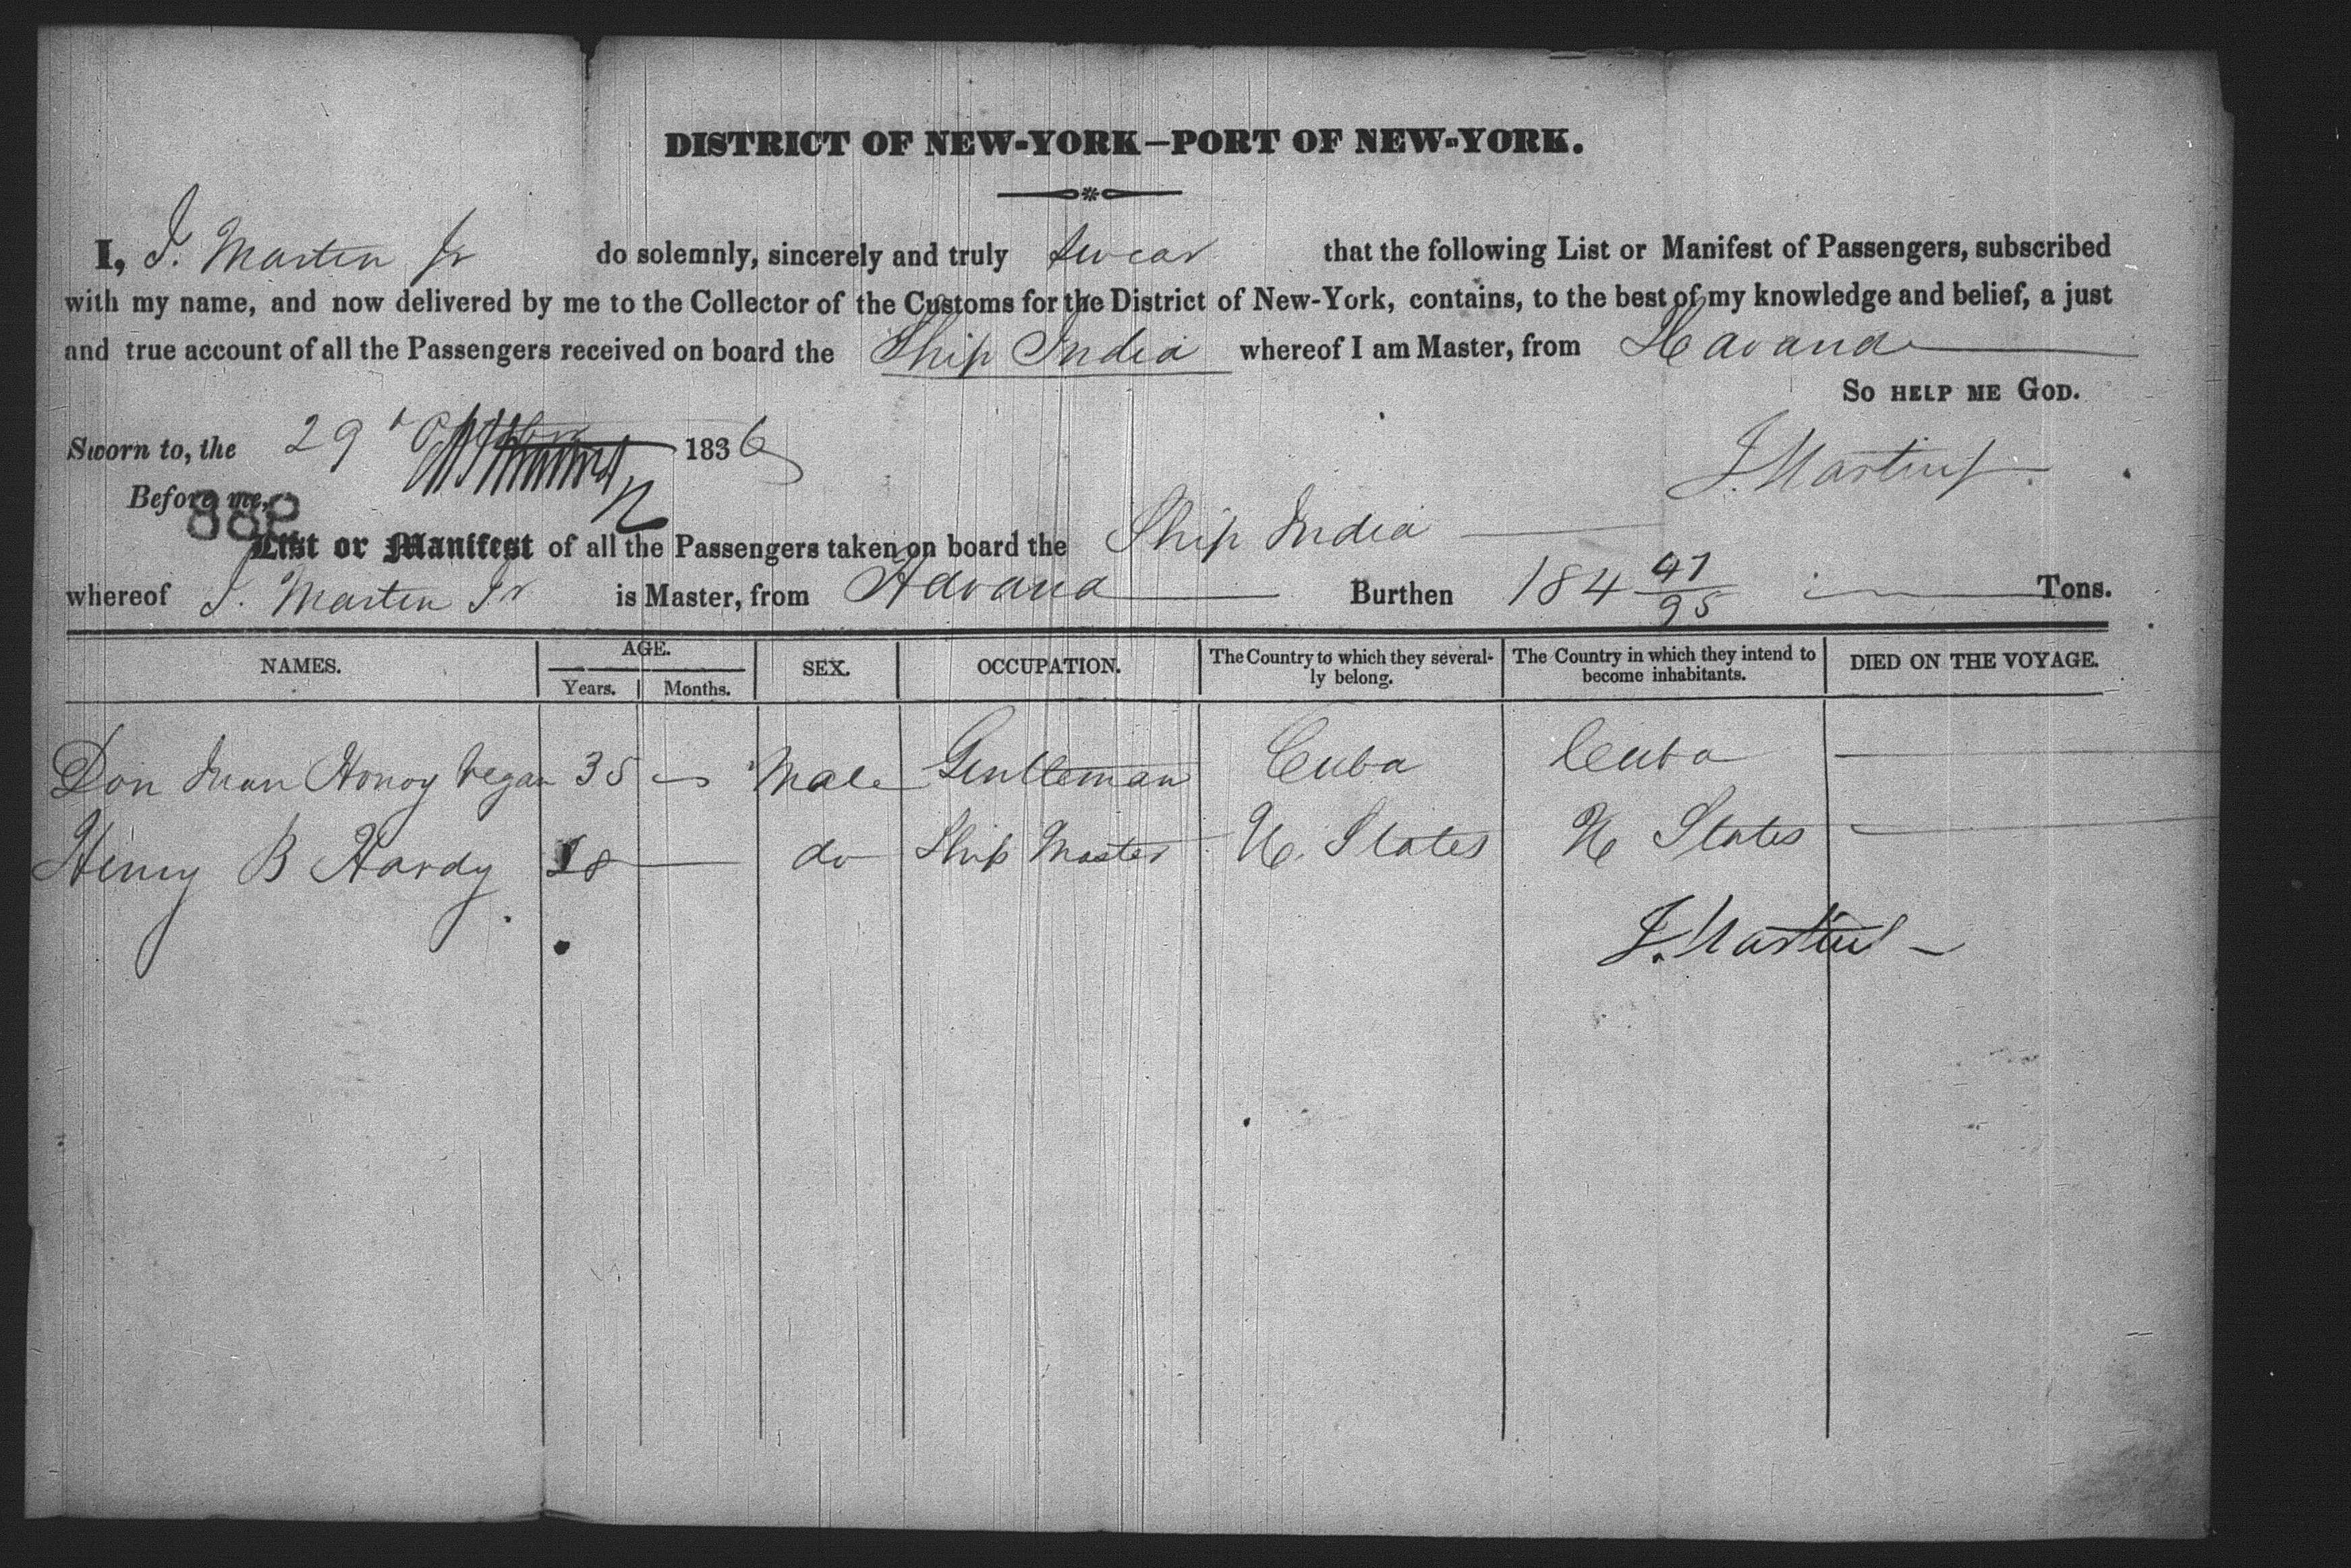 DISTRICT OF NEW-YORK—PORT OF NEW-YORK.
I, J. Martin Jr do solemnly, sincerely and truly swear that the following List or Manifest of Passengers, subscribed
with my name, and now delivered by me to the Collector of the Customs for the District of New-York, contains, to the best of my knowledge and belief, a just
and true account of all the Passengers received on board the Ship India whereof I am Master, from Havana
So HELP ME GOD.
Sworn to, the 29 1836
J. Martin Jr
Before me,
888
List or Manifest of all the Passengers taken on board the Ship India
whereof J. Martin Jr is Master, from Havana Burthen 184 47/95 Tons.
NAMES. AGE. Years. Months. SEX. OCCUPATION. The Country to which they severally belong. The Country in which they intend to become inhabitants. DIED ON THE VOYAGE.
Don Juan 35 Male Gentleman Cuba Cuba
Henry B Hardy do Ship Master U. States U States
J. Martin Jr